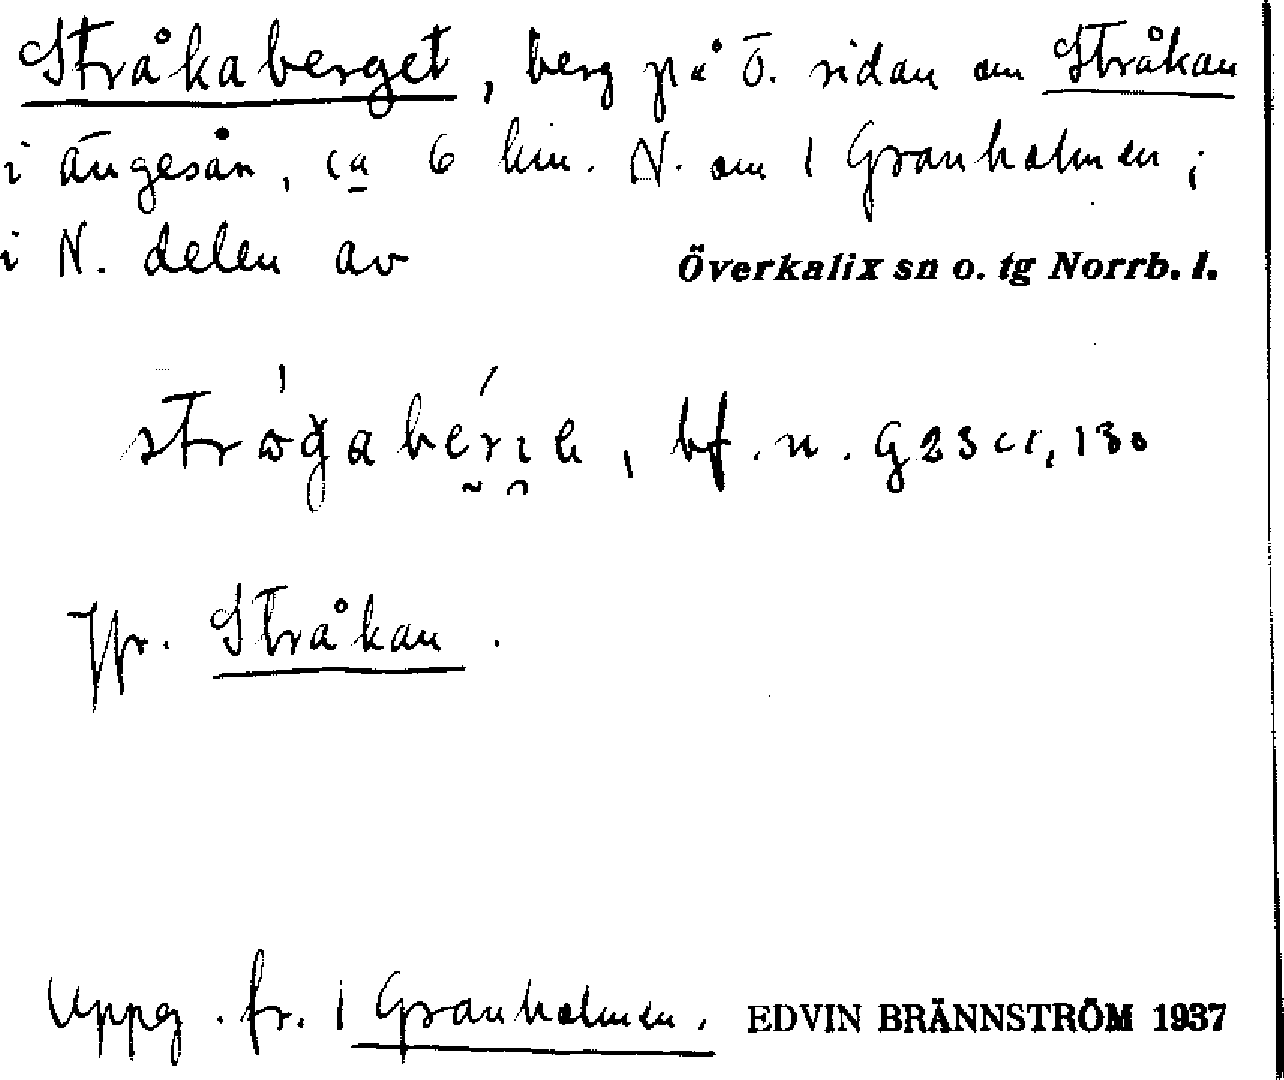 Stråkaberget, berg på Ö. sidan om Stråkan
i ängesån, ca 6 km. N. om 1 Granholmen;
i N. delen av Överkalix sn o. tg Norrb. l.
bf. n.
Jfr. Stråkan.
Uppg. fr. 1 Granholmen. EDVIN BRÄNNSTRÖM 1937